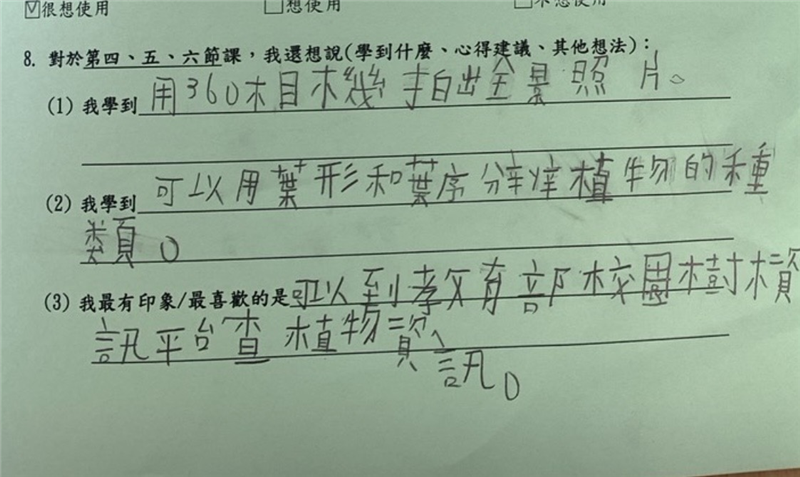 ☑很想使用 ☐想使用 ☐不想使用
8. 對於第四、五、六節課，我還想說(學到什麼、心得建議、其他想法)：
(1) 我學到用360相機拍出全景照片。
(2) 我學到可以用葉形和葉序分辨植物的種
類。
(3) 我最有印象/最喜歡的是可以到教育部校園樹木資
訊平台查植物資訊。